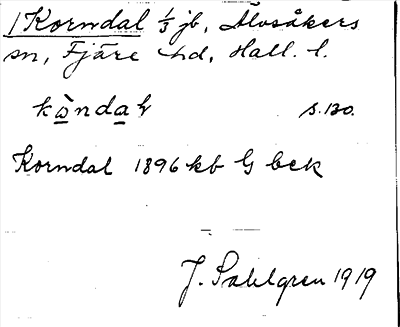 1 Korndal 1/3 jb, Älvsåkers
sn, Fjäre hd, Hall. l.
kòndaɫ s. 130.
Korndal 1896 kb G bek
J. Sahlgren 1919